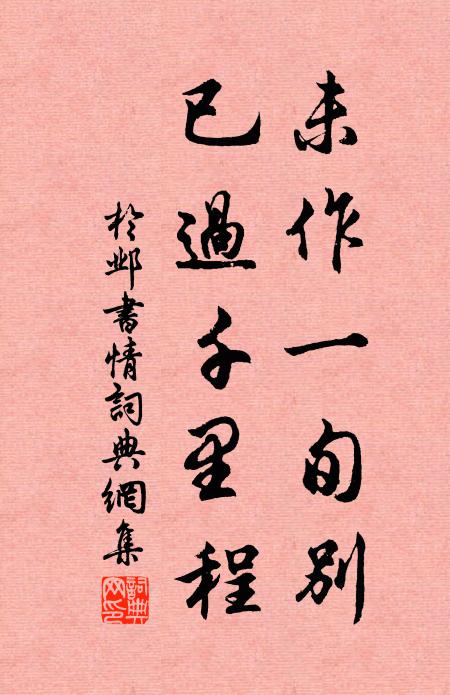 未作一旬別
已過千里程
於邺書情詞典網集
詞典網印